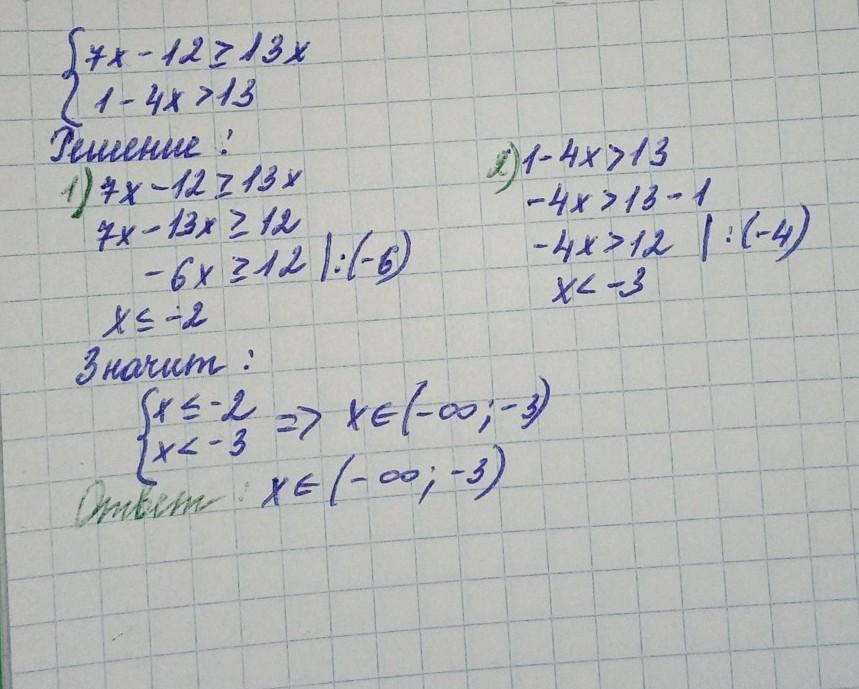 7x - 12 ≥ 13x
1 - 4x > 13
Решение:
1) 7x - 12 ≥ 13x
7x - 13x ≥ 12
-6x ≥ 12 | :(-6)
x ≤ -2
2) 1 - 4x > 13
-4x > 13 - 1
-4x > 12 | :(-4)
x < -3
Значит:
x ≤ -2
x < -3
=> x ∈ (-∞; -3)
Ответ: x ∈ (-∞; -3)